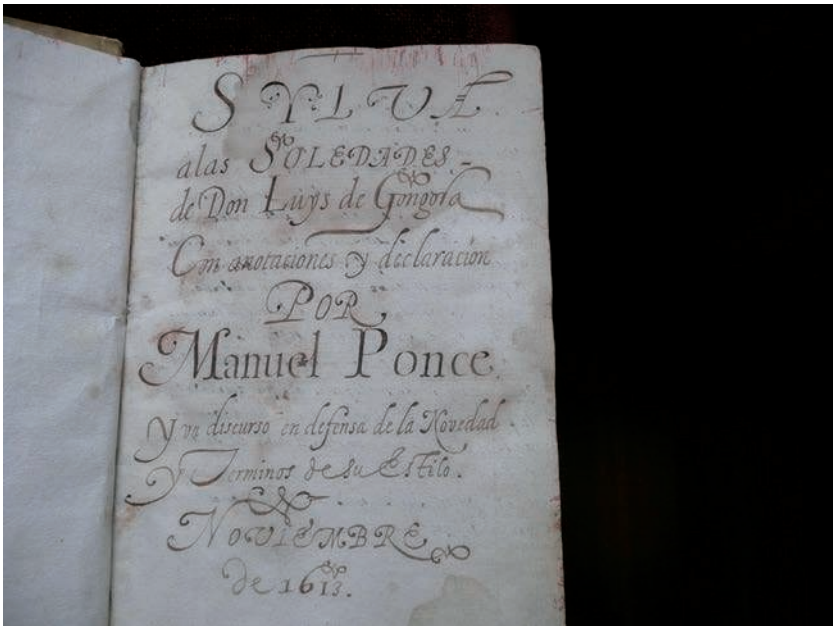 SYLVA
a las SOLEDADES
de Don Luys de Gongora
Con anotaciones y declaracion
POR
Manuel Ponce
Y un discurso en defensa de la Novedad
Y Terminos de su Estilo.
NOVIEMBRE
de 1613.